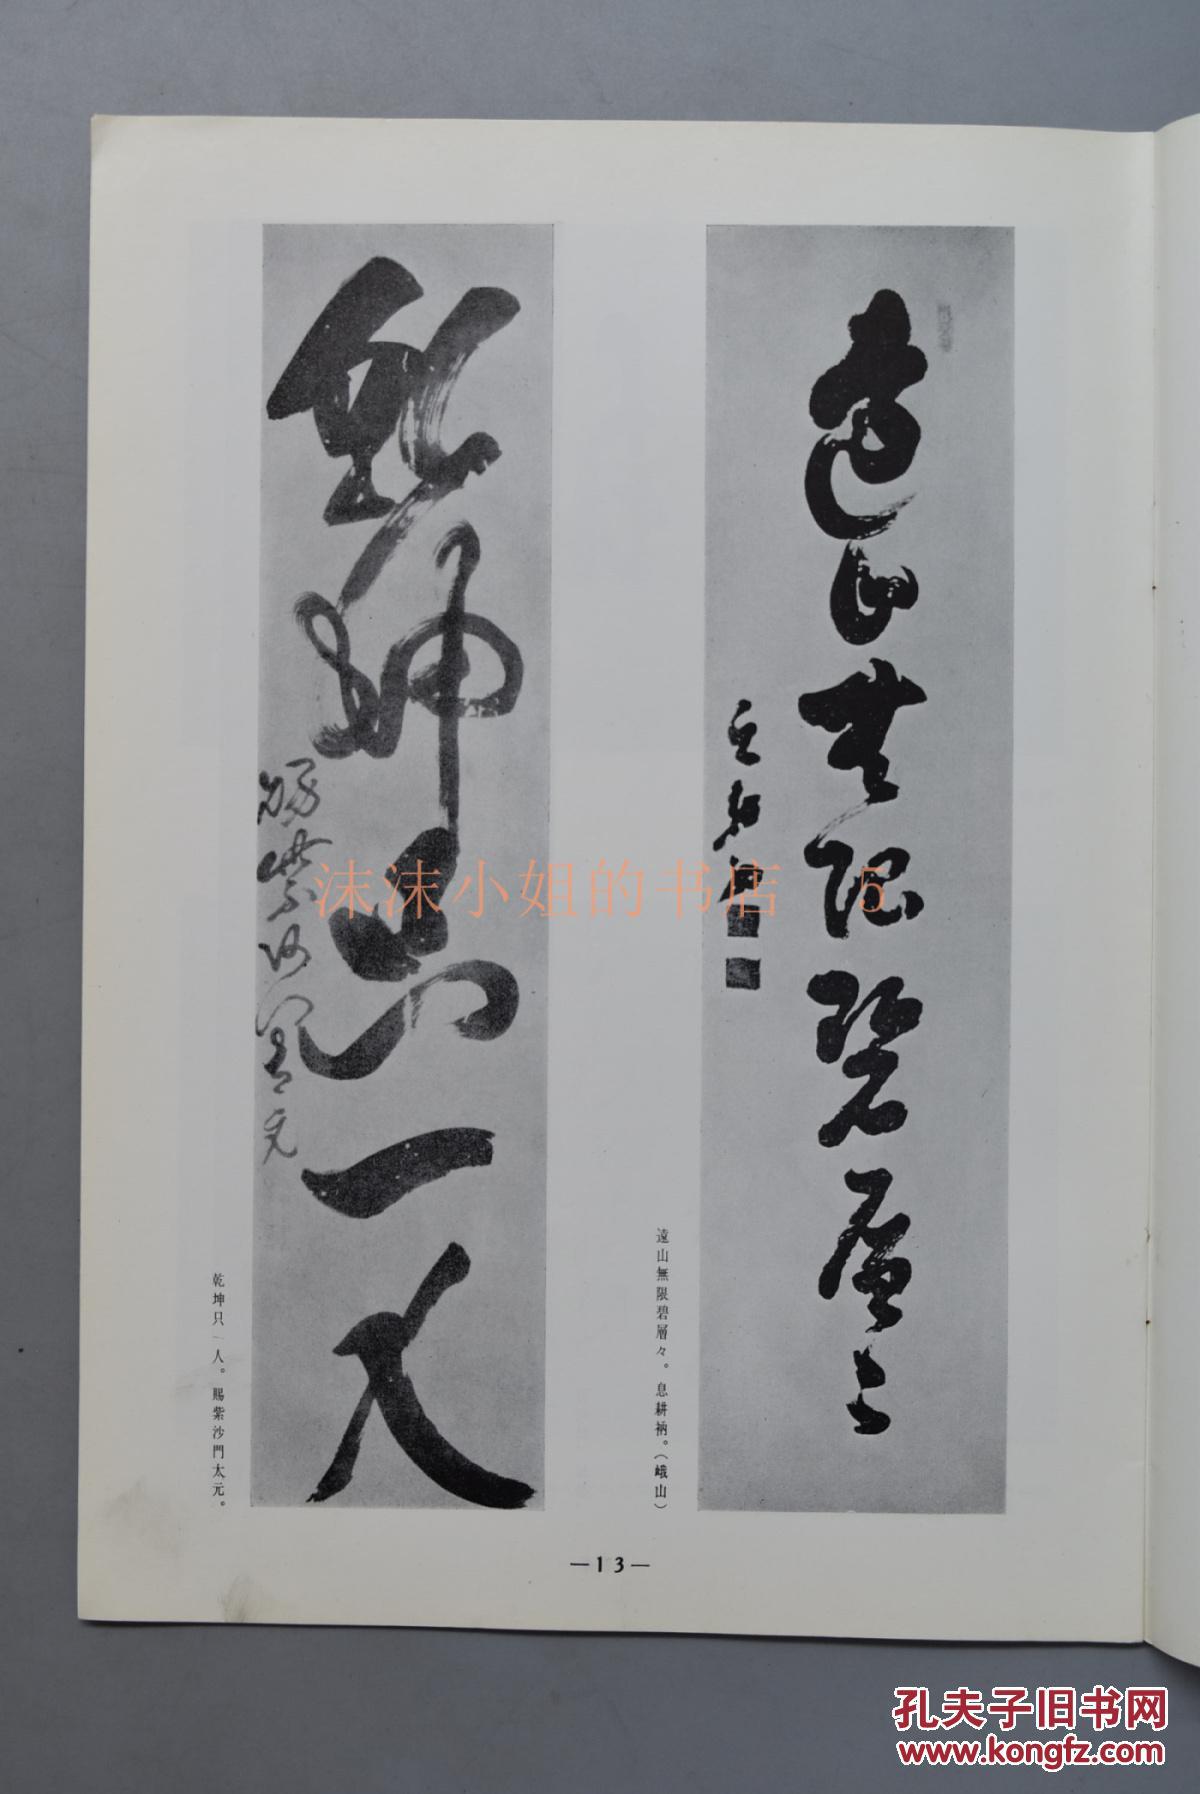 遠山無限碧層々
息耕衲
遠山無限碧層々。息耕衲。（峨山）
乾坤只一人
賜紫沙門太元
乾坤只一人。賜紫沙門太元。
沫沫小姐的书店 5
—13—
孔夫子旧书网
www.kongfz.com